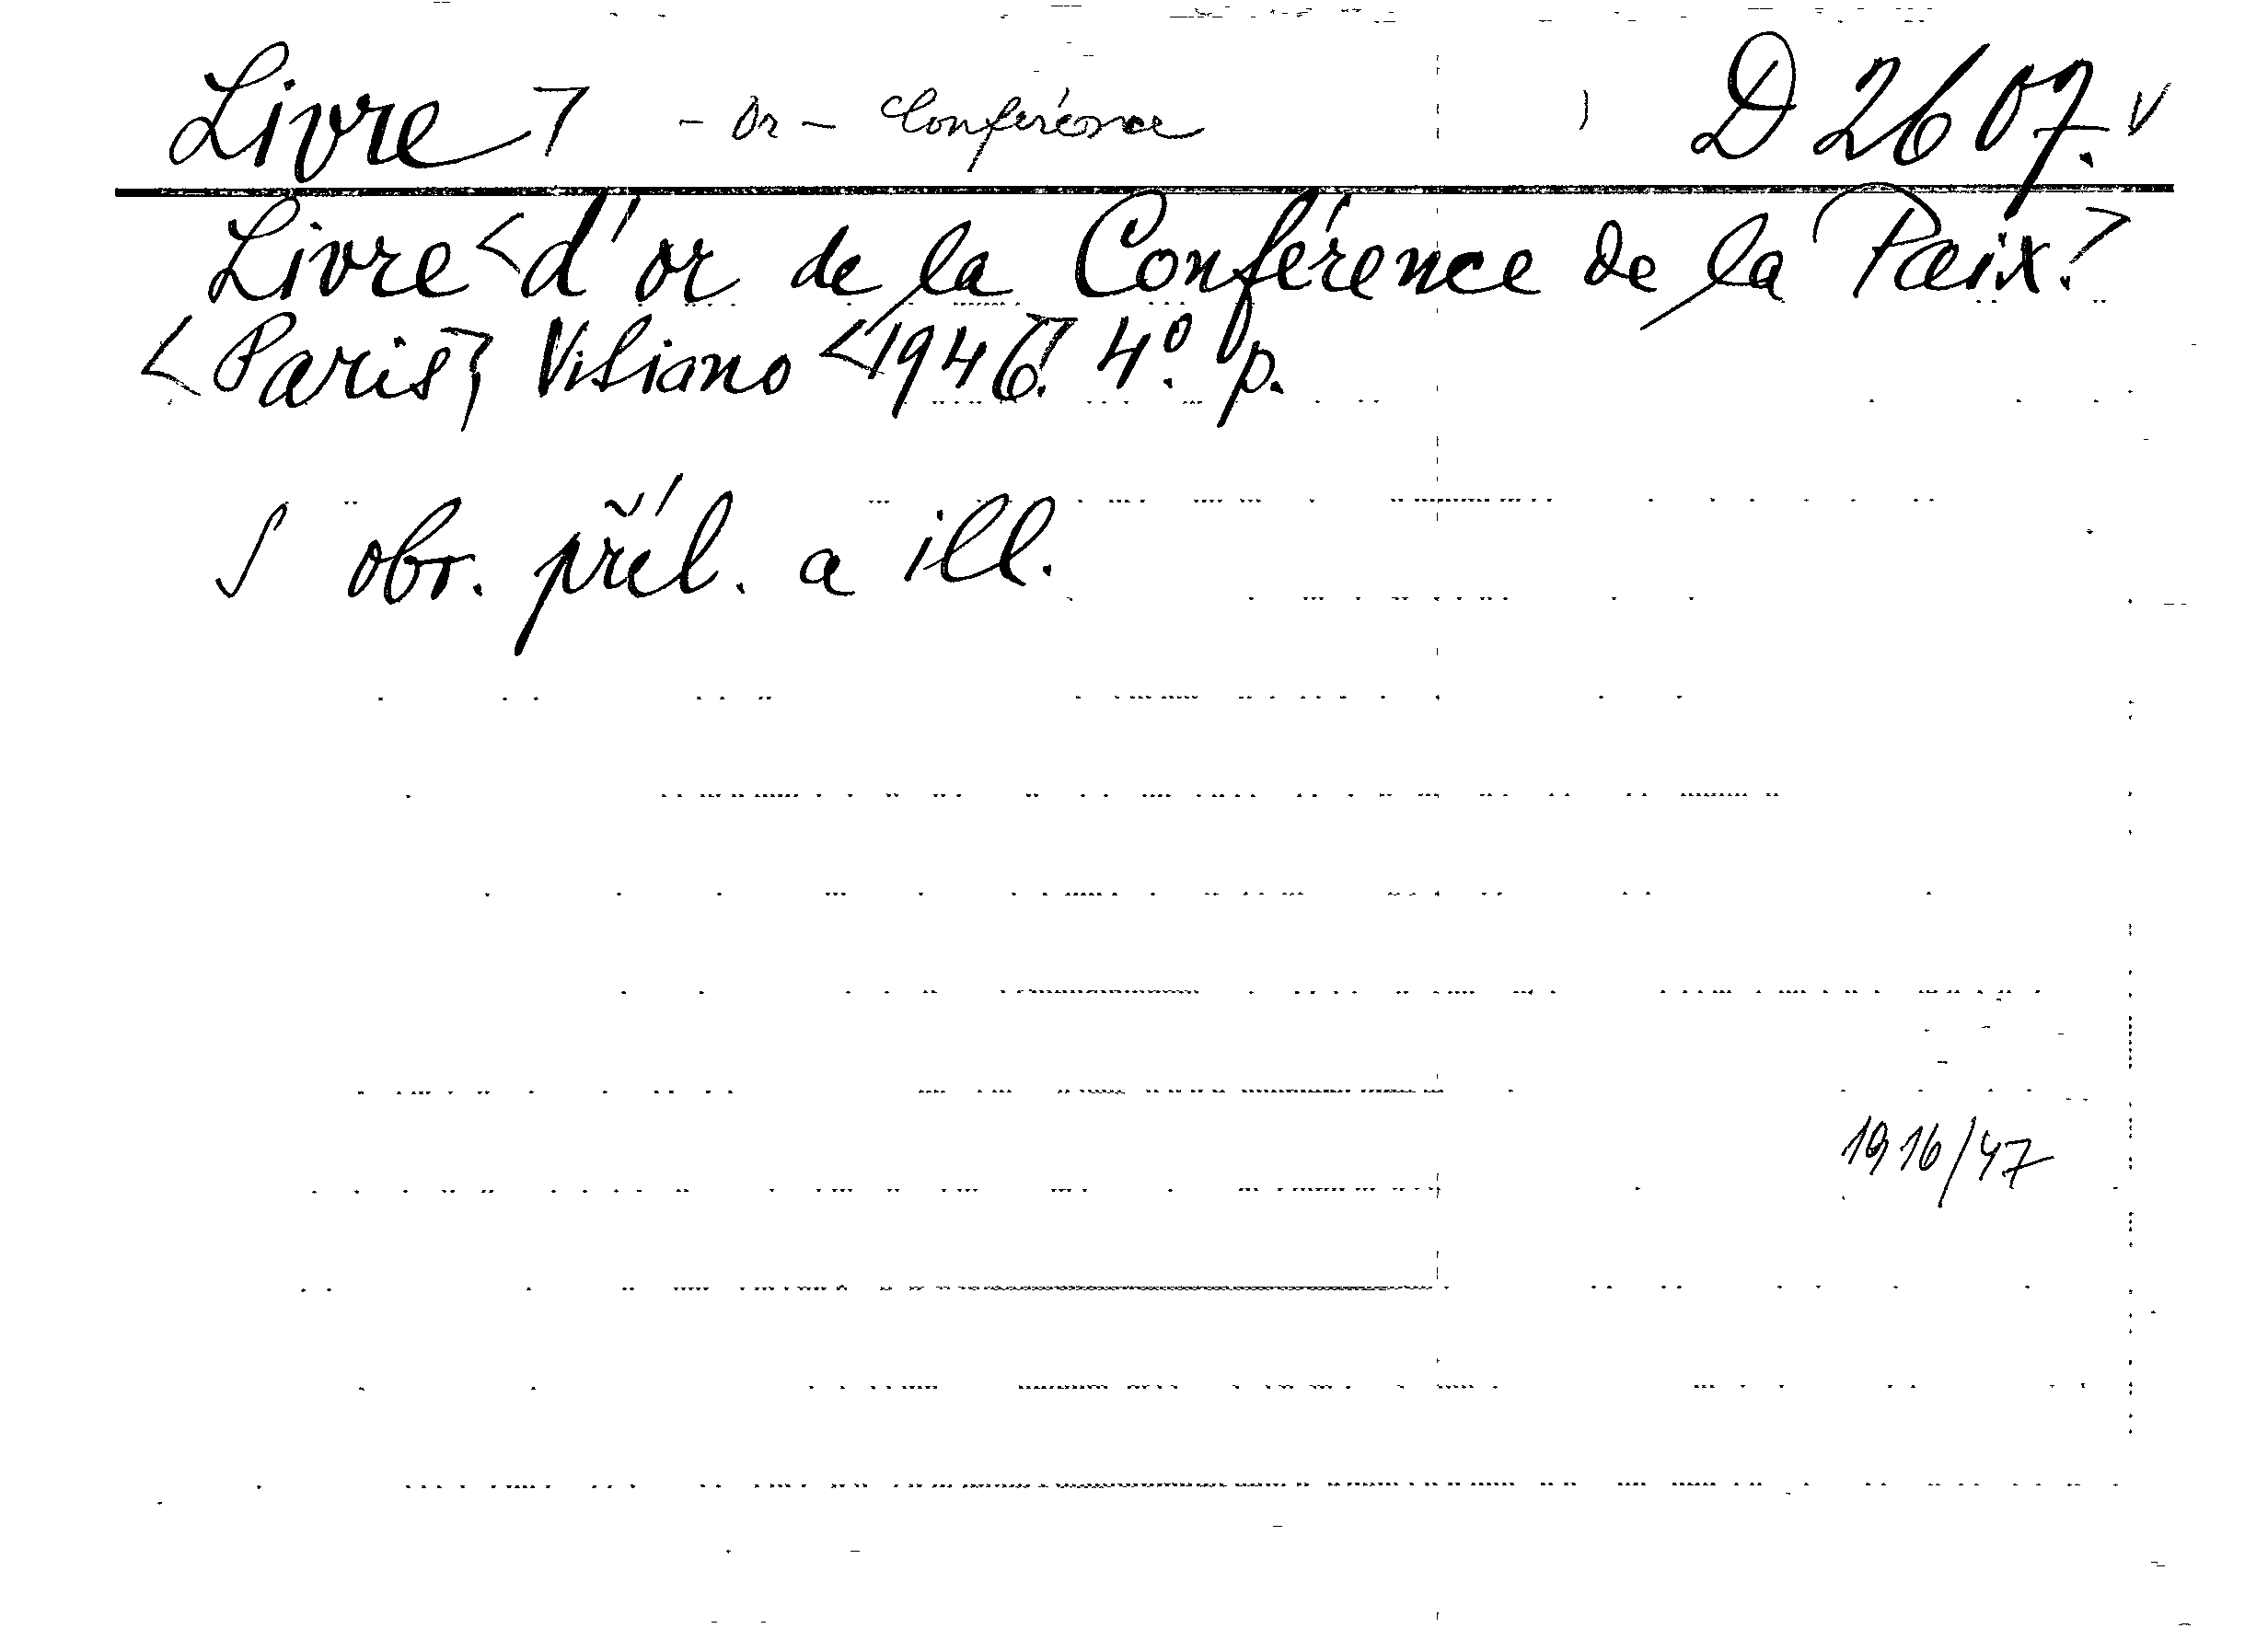 Livre > - Or - Conférence D 2607. v
Livre < d'or de la Conférence de la Paix. >
< Paris, > Visiano < 1946. > 4º. p.
S obr. příl. a ill.
1916/47